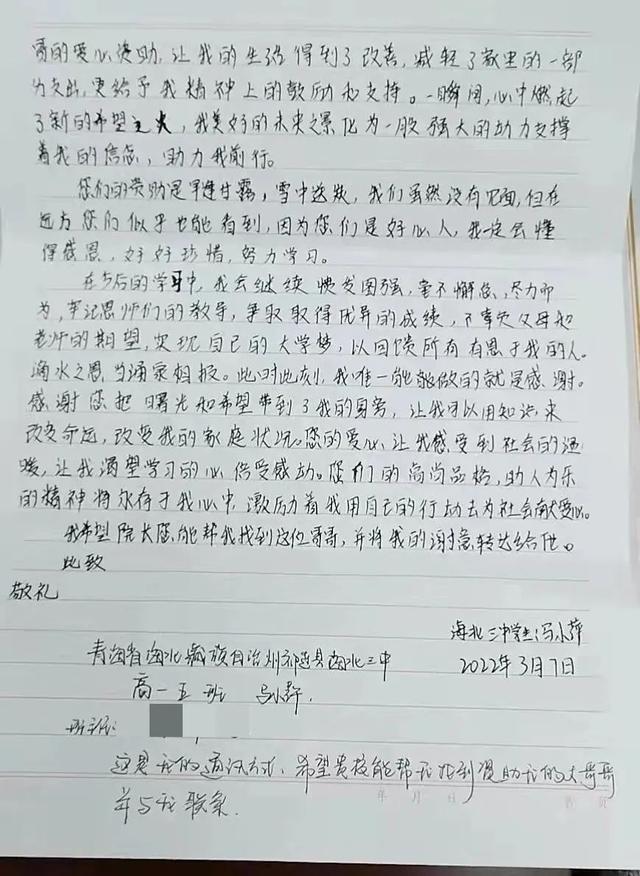 哥的爱心资助,让我的生活得到了改善,减轻了家里的一部
为支出,更给予我精神上的鼓励和支持。一瞬间,心中燃起
了新的希望之火,我美好的未来之景化为一股强大的动力支撑
着我的信念,助力我前行。
您们的资助是旱逢甘露,雪中送炭,我们虽然没有见面,但在
远方您们似乎也能看到,因为您们是好心人,我一定会懂
得感恩,好好珍惜,努力学习。
在今后的学习中,我会继续愤发图强,毫不懈怠,尽力而
为,牢记恩师们的教导,争取取得优异的成绩,不辜负父母和
老师的期望,实现自己的大学梦,以回馈所有有恩于我的人。
滴水之恩当涌泉相报。此时此刻,我唯一能能做的就是感谢。
感谢您把曙光和希望带到了我的身旁,让我可以用知识来
改变命运,改变我的家庭状况。您的爱心,让我感受到社会的温
暖,让我渴望学习的心倍受感动。您们的高尚品格,助人为乐
的精神将永存于我心中,激励着我用自己的行动去为社会献爱心。
我希望院长您能帮我找到这位哥哥,并将我的谢意转达给他。
此致
敬礼
海北三中学生:冯小萍
青海省海北藏族自治州祁连县海北三中
2022年3月7日
高一五班
班主任:
这是我的通讯方式,希望贵校能帮我找到资助我的大哥哥
并与我联系.
年 月 日 第 页